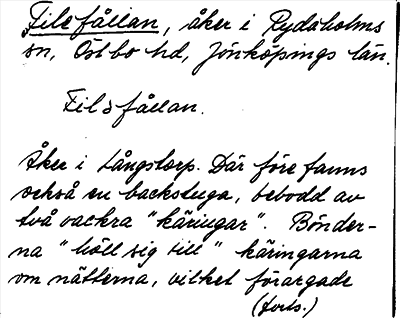 Filefållan, åker i Rydaholms
sn, Östbo hd, Jönköpings län.
Filsfållan.
Åker i Långstorp. Där före fanns
också en backstuga, bebodd av
två vackra "käringar". Bönder-
na "höll sig till" käringarna
om nätterna, vilket förargade
(forts.)